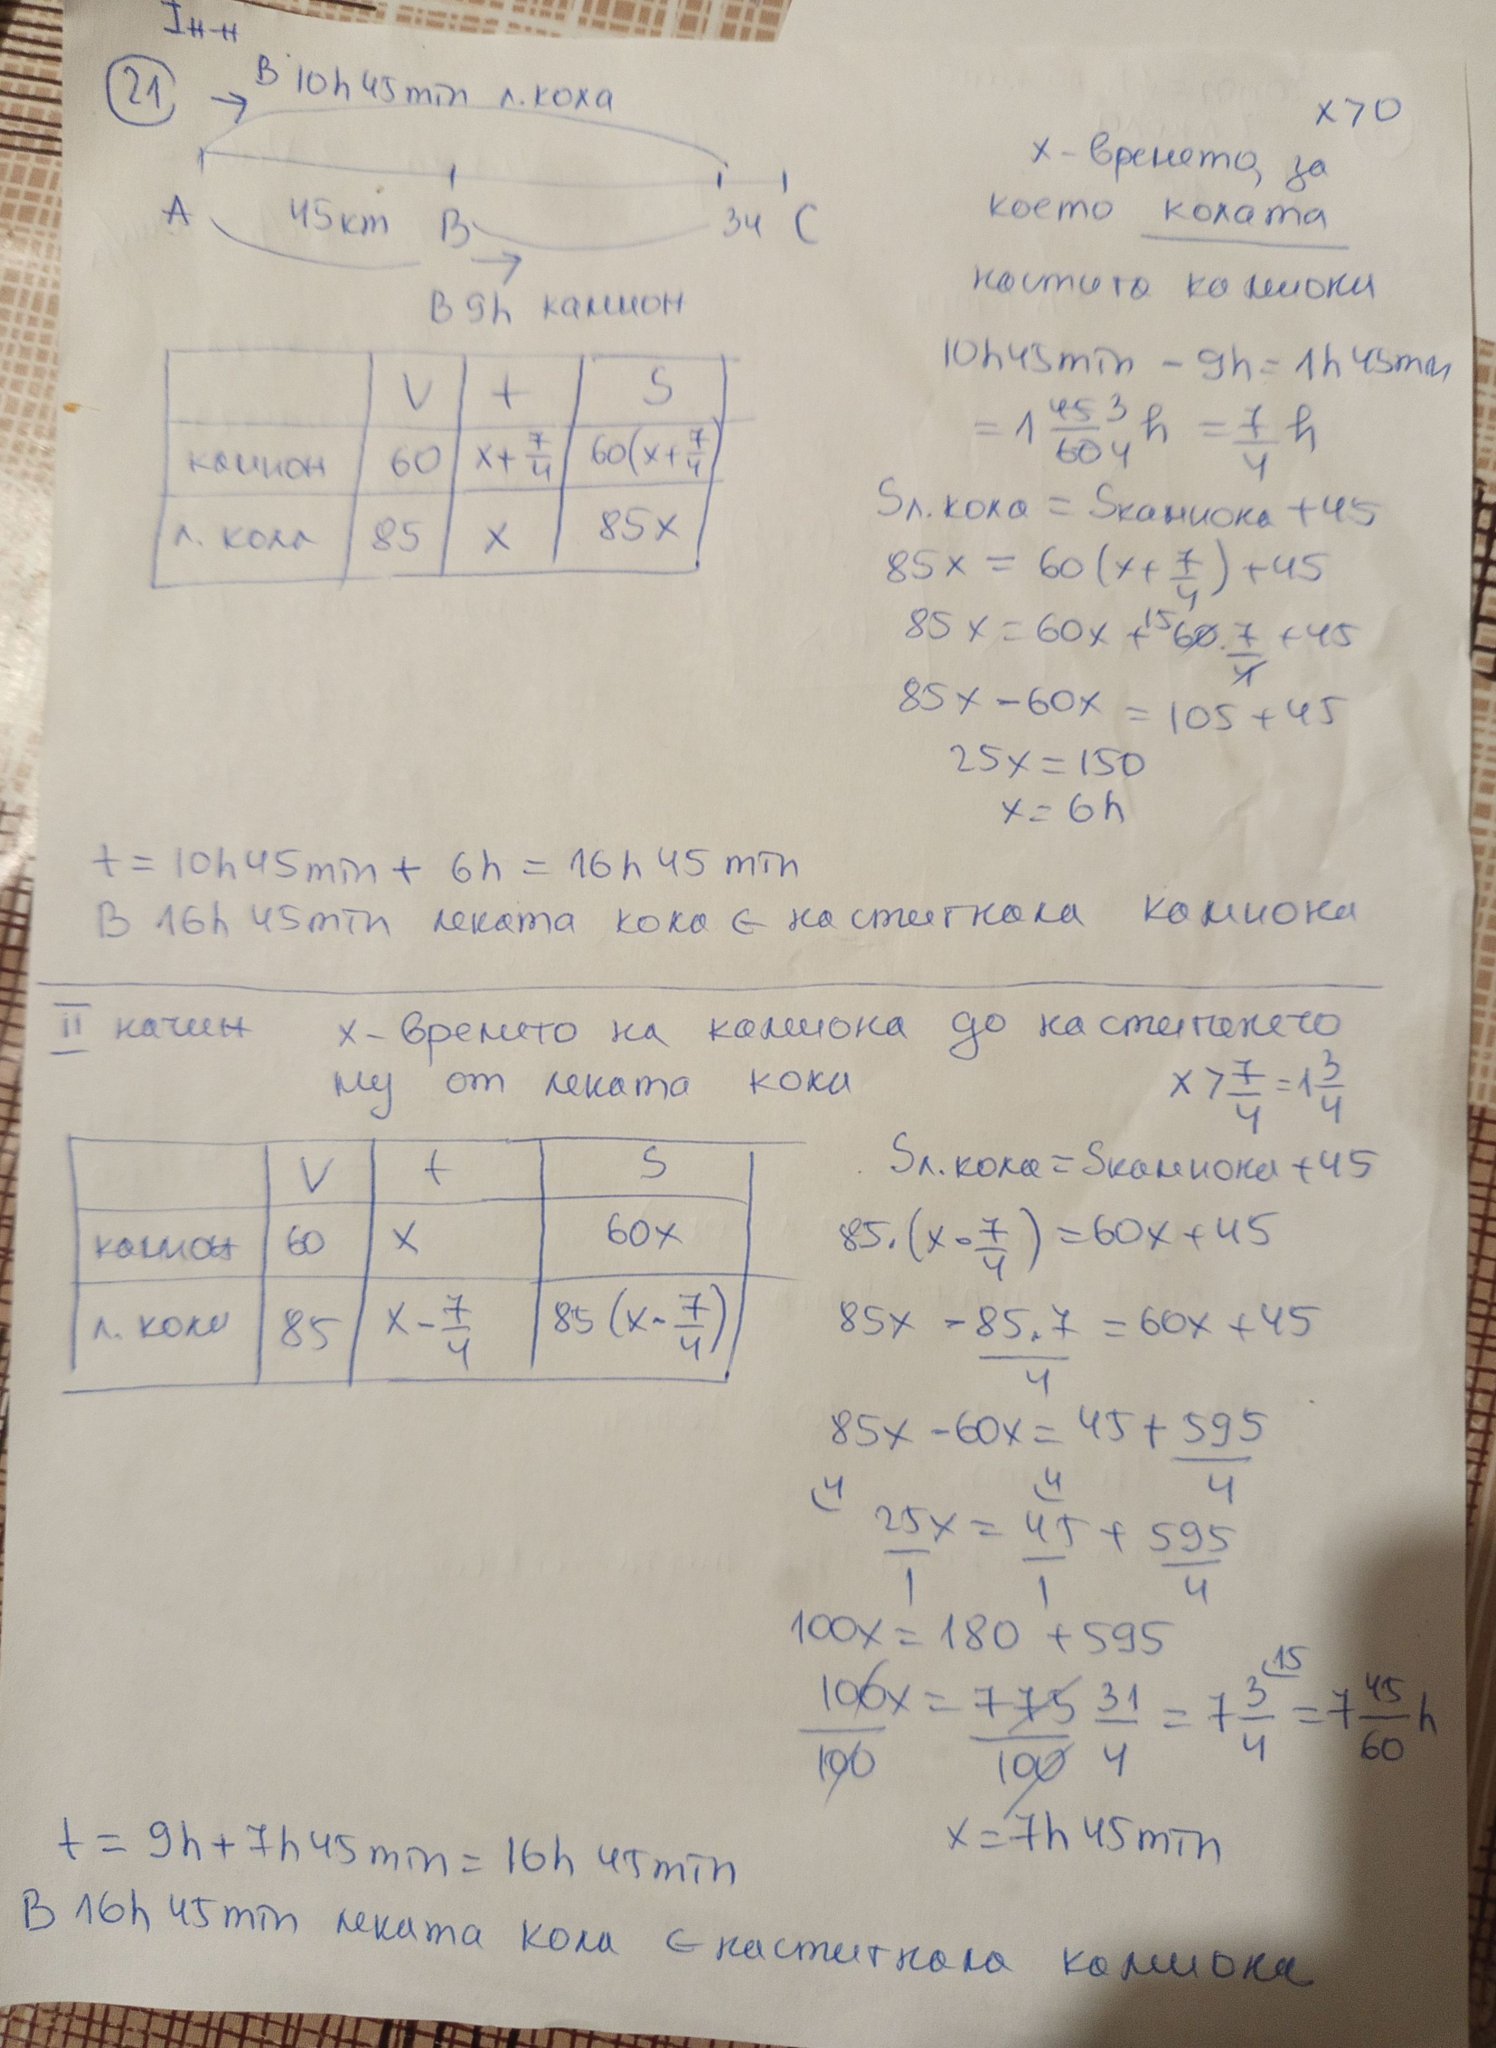 I н-н
21 В 10h 45min л.кола
A 45km B 34 C
В 9h камион
V t S
камион 60 x+7/4 60(x+7/4)
л. кола 85 x 85x
x>0
x - времето, за
което колата
настига камиона
10h45min - 9h = 1h45min
= 1 45/60 3/4 h = 7/4 h
Sл.кола = Sкамиона + 45
85x = 60(x+7/4) + 45
85x = 60x + 15 60.7/4 + 45
85x - 60x = 105 + 45
25x = 150
x = 6h
t = 10h45min + 6h = 16h 45 min
В 16h 45min леката кола е настигнала камиона
II начин x - времето на камиона до настигането
му от леката кола x > 7/4 = 1 3/4
V t S
камион 60 x 60x
л. кола 85 x - 7/4 85(x - 7/4)
Sл.кола = Sкамиона + 45
85.(x - 7/4) = 60x + 45
85x - 85.7/4 = 60x + 45
85x - 60x = 45 + 595/4
4 4
25x/1 = 45/1 + 595/4
100x = 180 + 595
100x/100 = 775/100 31/4 = 7 3/4 15 = 7 45/60 h
x = 7h 45min
t = 9h + 7h45min = 16h 45min
В 16h 45min леката кола е настигнала камиона